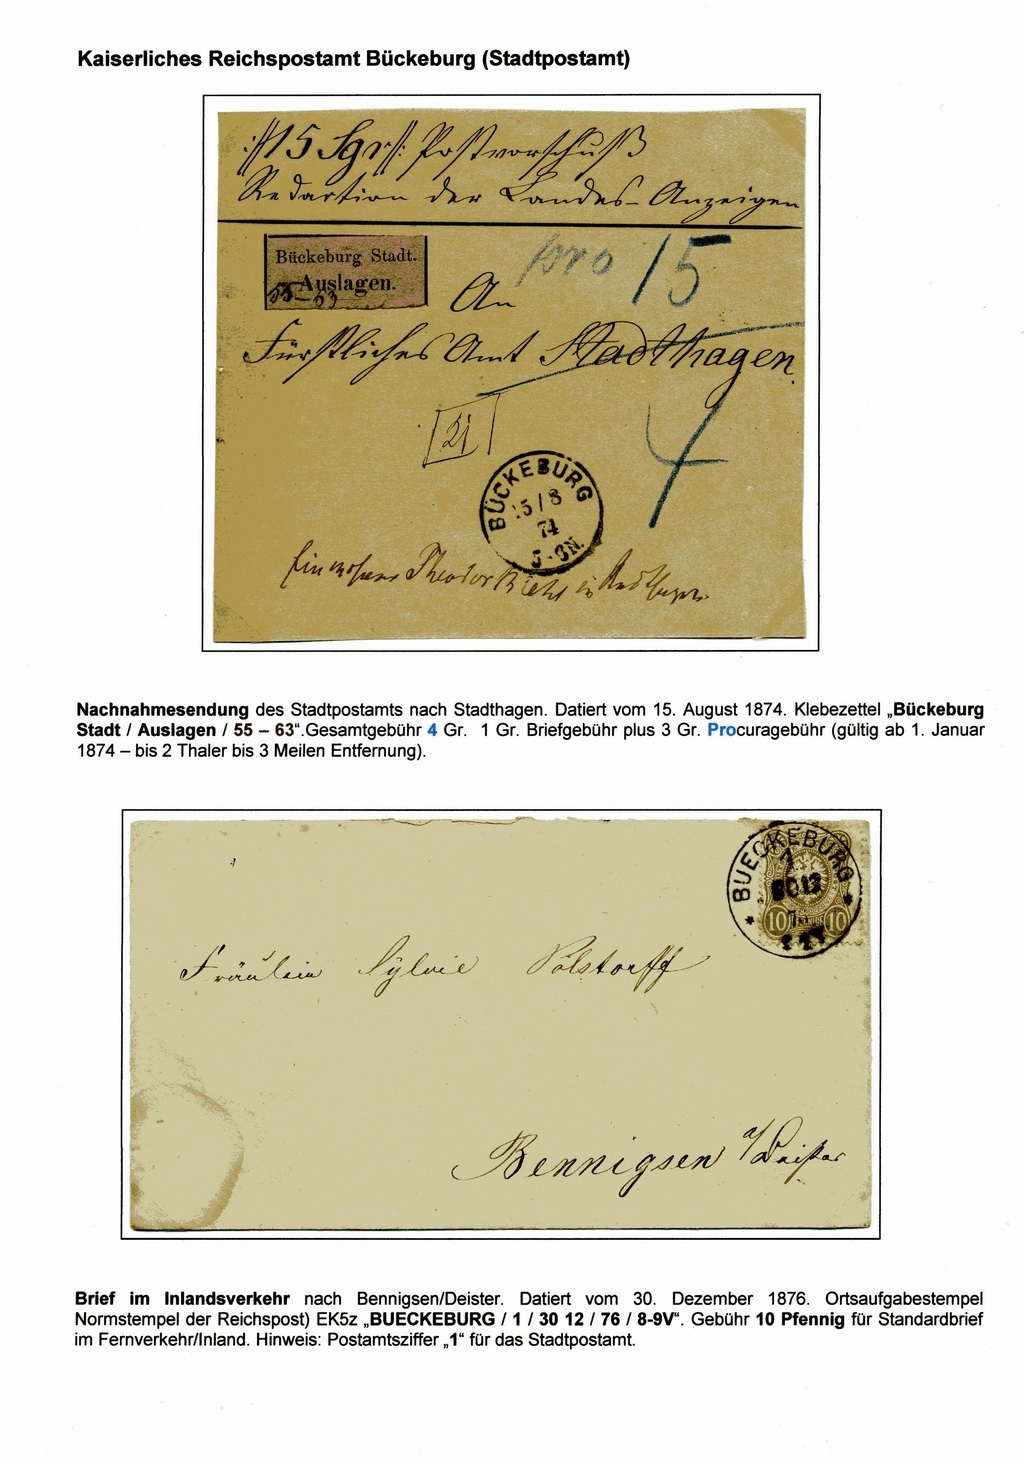 Kaiserliches Reichspostamt Bückeburg (Stadtpostamt)
:// 15 Sgr //: Postvorschuß
Redartion der Landes-Anzeigen
Bückeburg Stadt.
Auslagen.
55-63
pro 15
An
Fürstliches Amt Stadthagen.
21
4
BÜCKEBURG
15 / 8
74
5-8N.
Theodor
BUECKEBURG
1
30 12
10 10
Fräulein Sylvie Volstorff
Bennigsen a/Deister
Nachnahmesendung des Stadtpostamts nach Stadthagen. Datiert vom 15. August 1874. Klebezettel „Bückeburg
Stadt / Auslagen / 55 – 63“.Gesamtgebühr 4 Gr. 1 Gr. Briefgebühr plus 3 Gr. Procuragebühr (gültig ab 1. Januar
1874 – bis 2 Thaler bis 3 Meilen Entfernung).
Brief im Inlandsverkehr nach Bennigsen/Deister. Datiert vom 30. Dezember 1876. Ortsaufgabestempel
Normstempel der Reichspost) EK5z „BUECKEBURG / 1 / 30 12 / 76 / 8-9V“. Gebühr 10 Pfennig für Standardbrief
im Fernverkehr/Inland. Hinweis: Postamtsziffer „1“ für das Stadtpostamt.